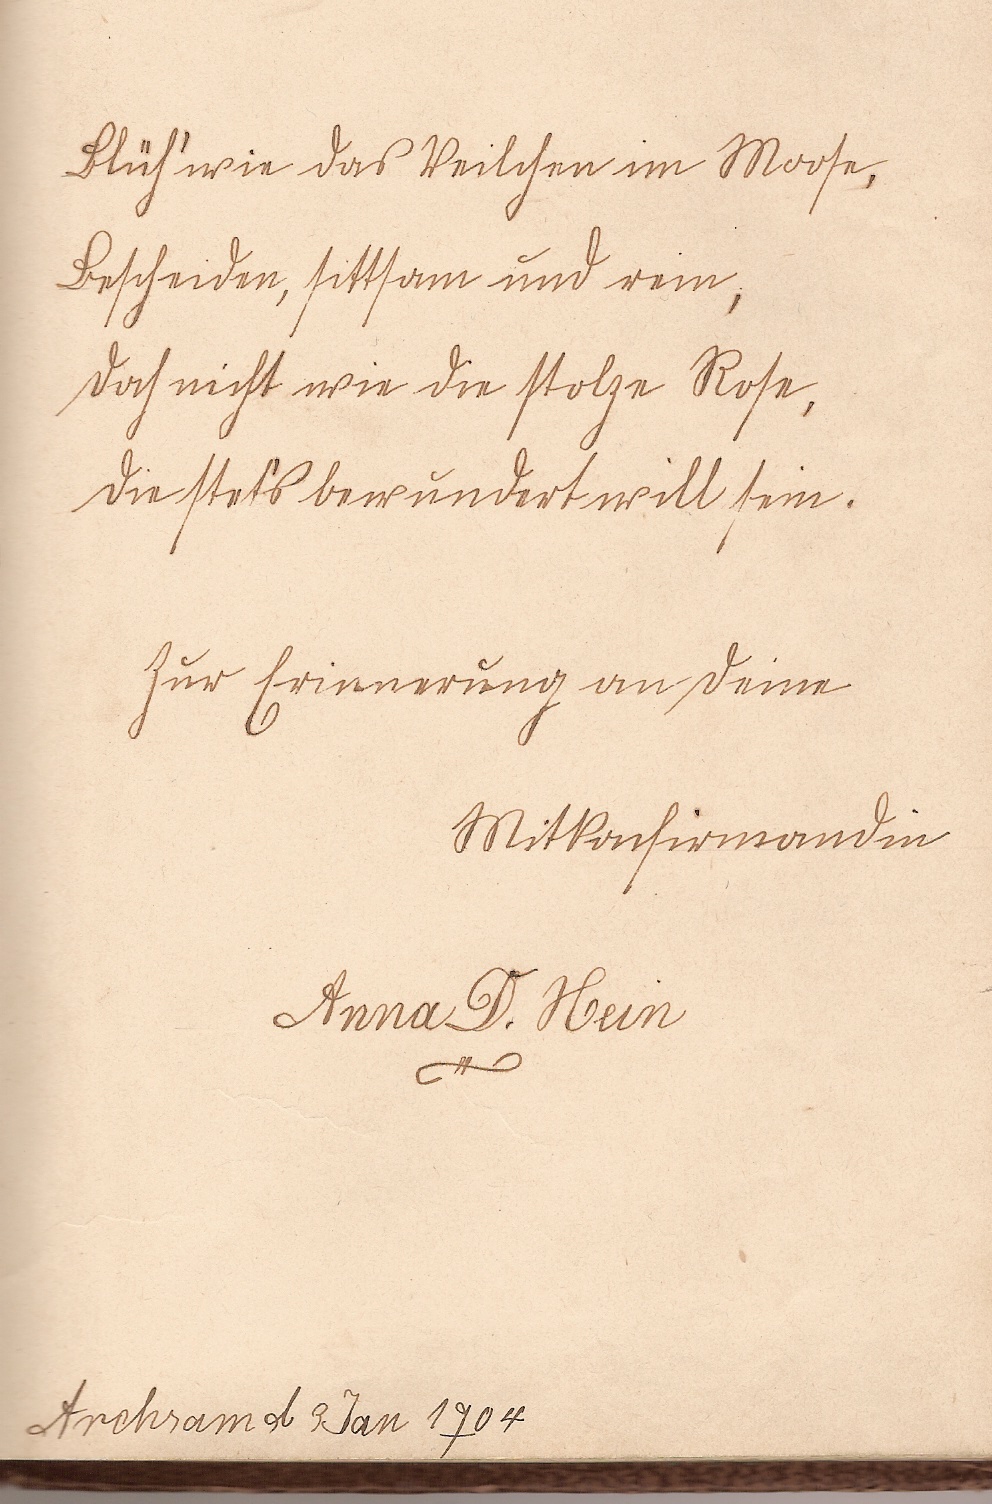 Blüh' wie das Veilchen im Moose,
Bescheiden, sittsam und rein,
Doch nicht wie die stolze Rose,
Die stets bewundert will sein.
Zur Erinnerung an Deine
Mitkonfirmandin
Anna D. Hein
Archsum d Jan 1904